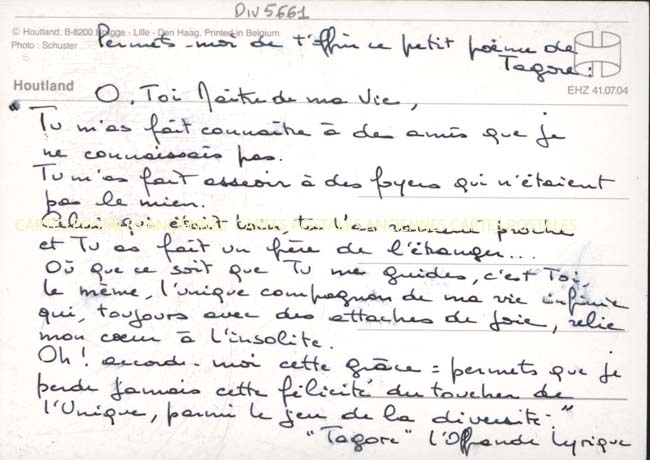 Div5661
© Houtland, B-8200 Brugge - Lille - Den Haag, Printed in Belgium
Photo : Schuster
Permets-moi de t'offrir ce petit poème de
Tagore :
Houtland
EHZ 41.07.04
O, Toi Maître de ma Vie,
"Tu m'as fait connaître à des amis que je
ne connaissais pas.
Tu m'as fait asseoir à des foyers qui n'étaient
pas le mien.
CARTES POSTALES ANCIENNES CARTES POSTALES ANCIENNES CARTES POSTALES
Celui qui était loin, tu l'as ramené proche
et Tu as fait un frère de l'étranger...
Où que ce soit que Tu me guides, c'est Toi,
le même, l'unique compagnon de ma vie infinie
qui, toujours avec des attaches de joie, relie
mon cœur à l'insolite.
Oh! accorde-moi cette grâce = permets que je
perde jamais cette félicité du toucher de
l'Unique, parmi le jeu de la diversité."
"Tagore" L'Offrande Lyrique